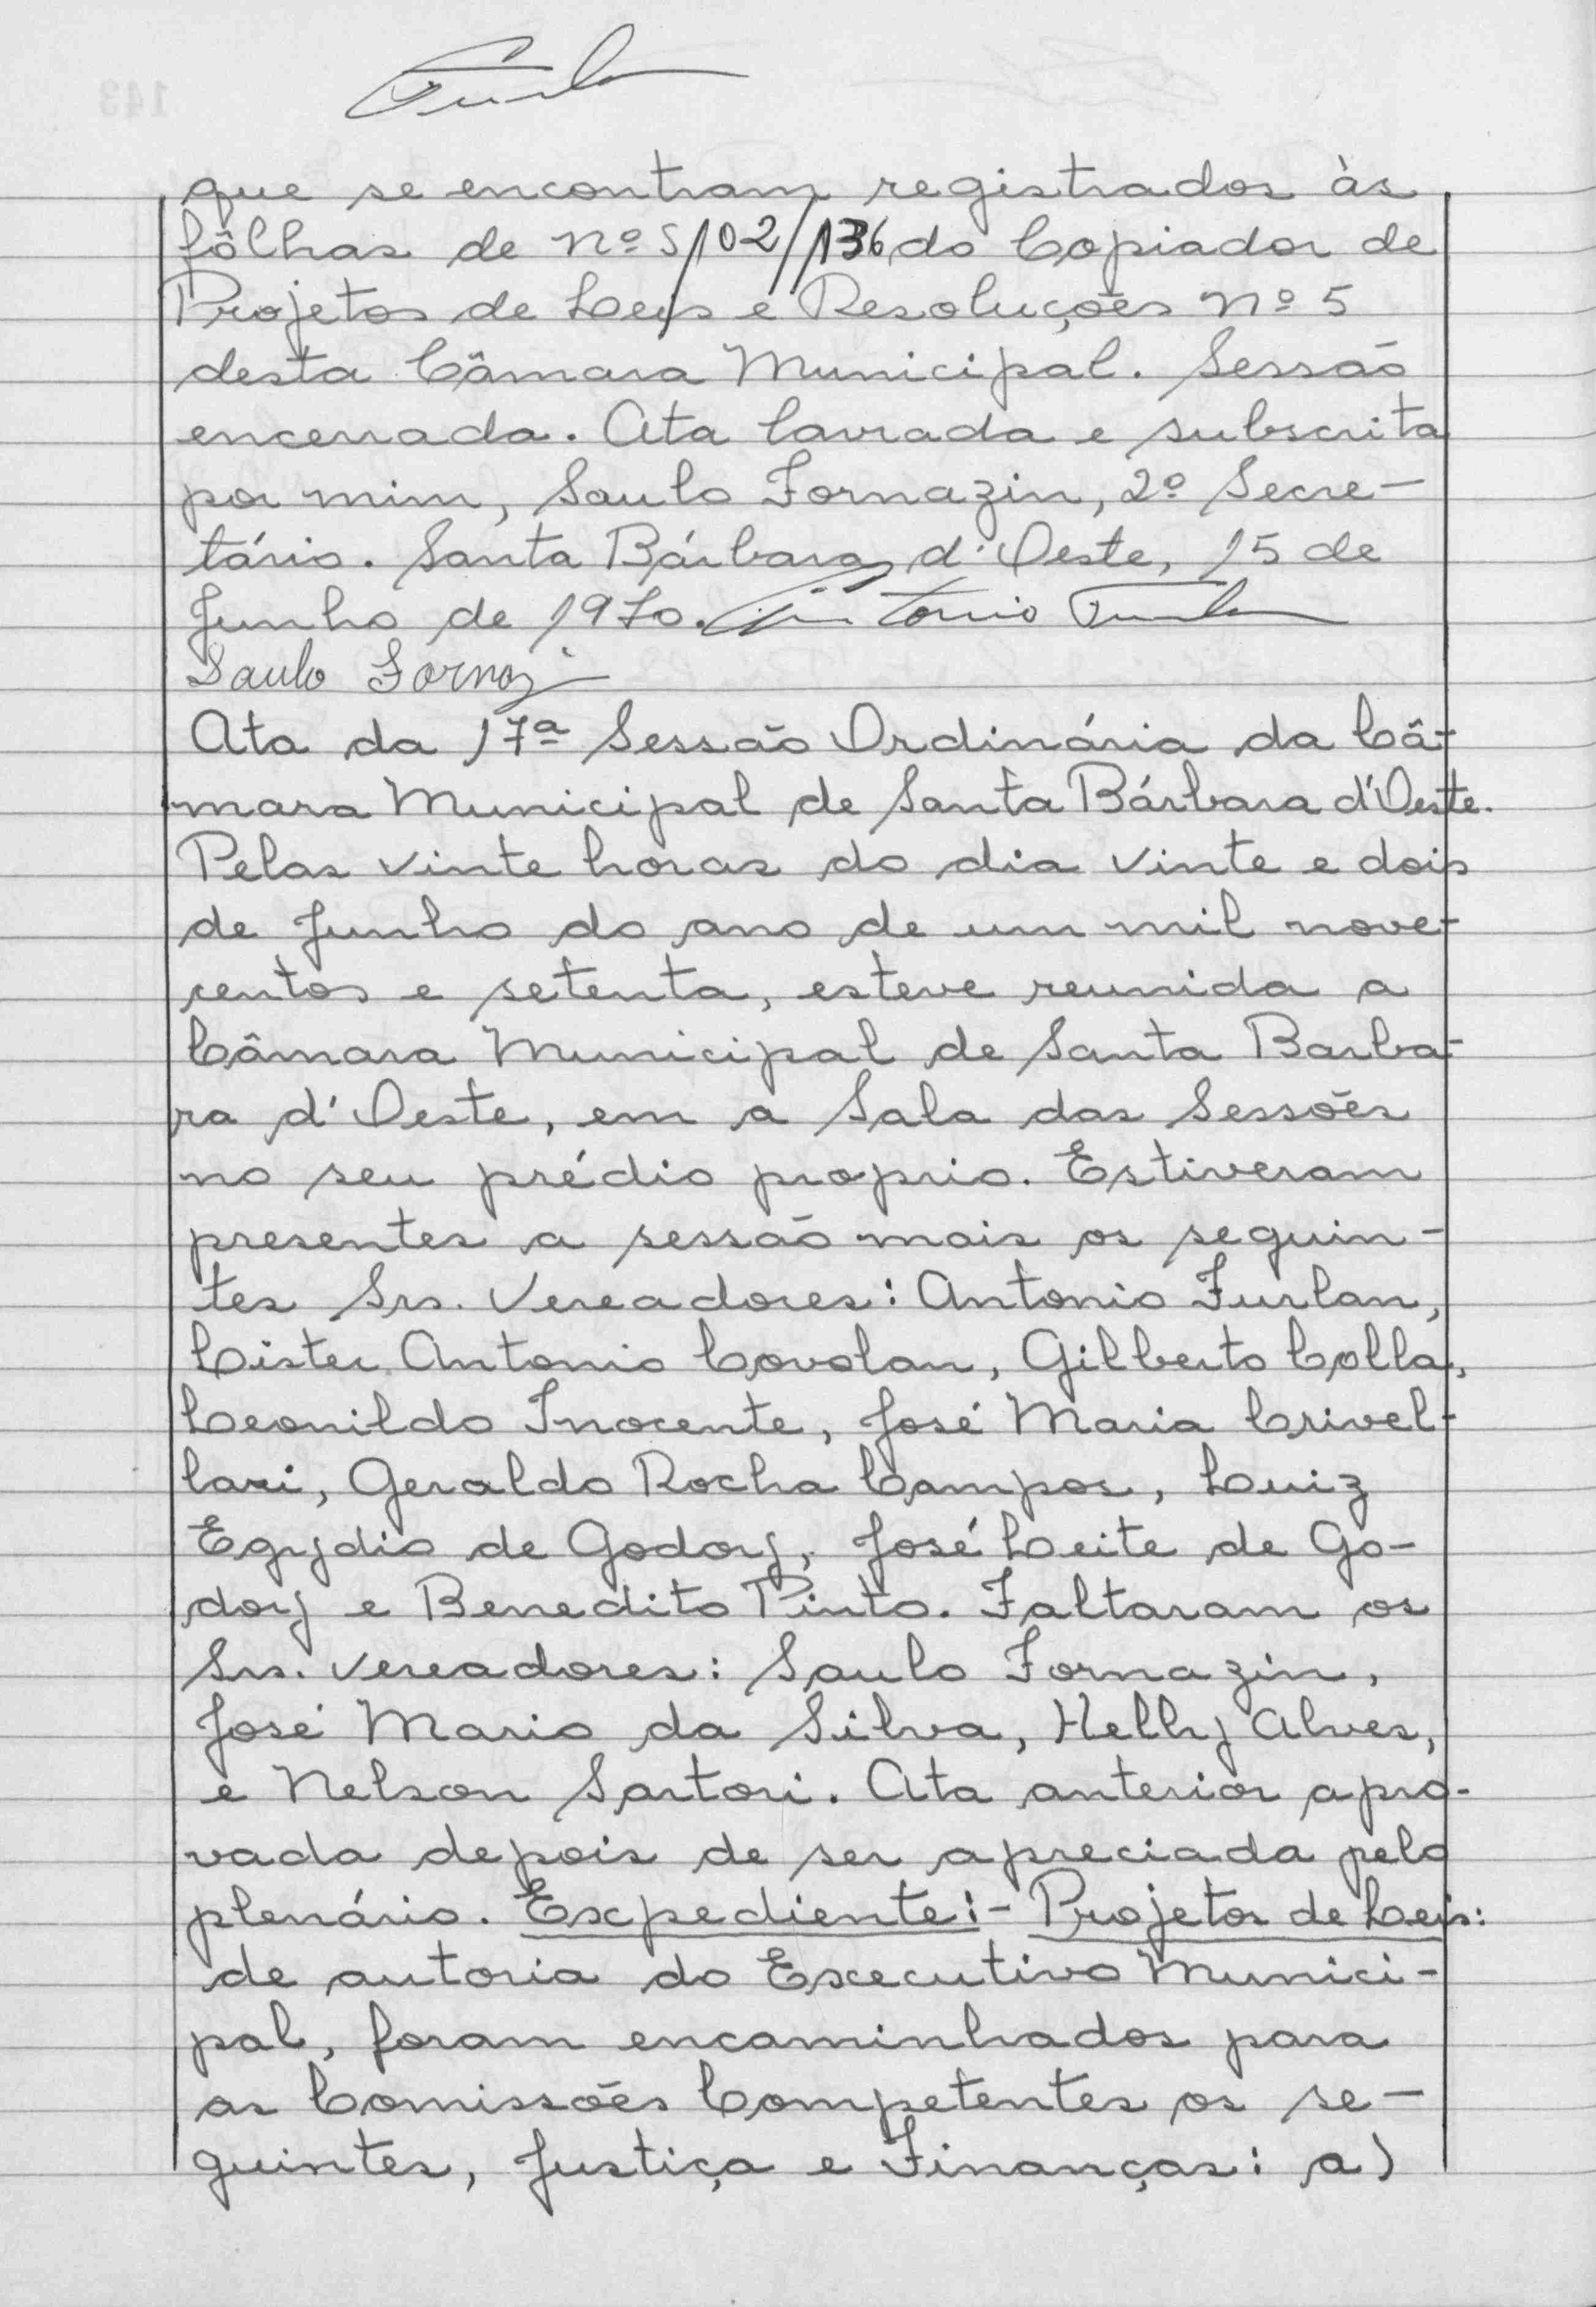 Furlan
que se encontram registrados às
fôlhas de nºs 102/136 do Copiador de
Projetos de Leis e Resoluções nº 5
desta Câmara Municipal. Sessão
encerrada. Ata lavrada e subscrita
por mim, Saulo Fornazin, 2º Secre-
tário. Santa Bárbara d'Oeste, 15 de
Junho de 1970. Antonio Furlan
Saulo Fornazin
Ata da 17ª Sessão Ordinária da Câ-
mara Municipal de Santa Bárbara d'Oeste.
Pelas vinte horas do dia vinte e dois
de Junho do ano de um mil nove-
centos e setenta, esteve reunida a
Câmara Municipal de Santa Barba-
ra d'Oeste, em a Sala das Sessões
no seu prédio proprio. Estiveram
presentes a sessão mais os seguin-
tes Srs. Vereadores: Antonio Furlan,
Cister Antonio Covolan, Gilberto Colla,
Leonildo Inocente, José Maria Crivel-
lari, Geraldo Rocha Campos, Luiz
Egydio de Godoy, José Leite de Go-
doy e Benedito Pinto. Faltaram os
Srs. Vereadores: Saulo Fornazin,
José Mario da Silva, Helly Alves,
e Nelson Sartori. Ata anterior apro-
vada depois de ser apreciada pelo
plenário. Expediente:- Projetos de Leis:
de autoria do Executivo Munici-
pal, foram encaminhados para
as Comissões Competentes os se-
guintes, Justiça e Finanças: a)